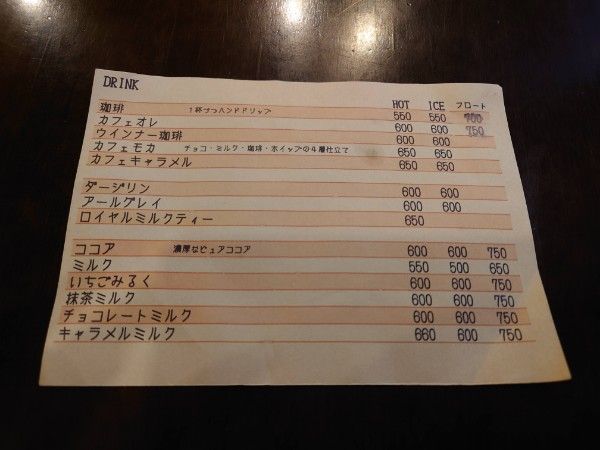 DRINK
HOT ICE フロート
珈琲 1杯づつハンドドリップ 550 550 700
カフェオレ 600 600 750
ウインナー珈琲 600 600
カフェモカ チョコ・ミルク・珈琲・ホイップの4層仕立て 650 650
カフェキャラメル 650 650
ダージリン 600 600
アールグレイ 600 600
ロイヤルミルクティー 650
ココア 濃厚なピュアココア 600 600 750
ミルク 550 500 650
いちごみるく 600 600 750
抹茶ミルク 600 600 750
チョコレートミルク 600 600 750
キャラメルミルク 660 600 750